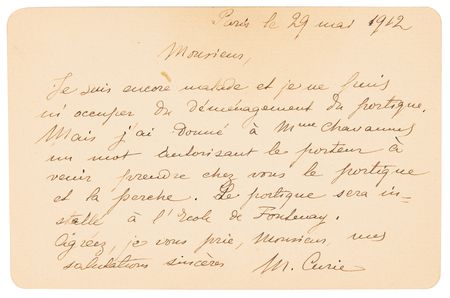 Paris le 29 mai 1912
Monsieur,
Je suis encore malade et je ne puis
m'occuper du déménagement du portique.
Mais j'ai donné à Mme Chavannes
un mot autorisant le porteur à
venir prendre chez vous le portique
et la perche. Le portique sera in-
stallé à l'École de Fontenay.
Agréez, je vous prie, Monsieur, mes
salutations sincères M. Curie